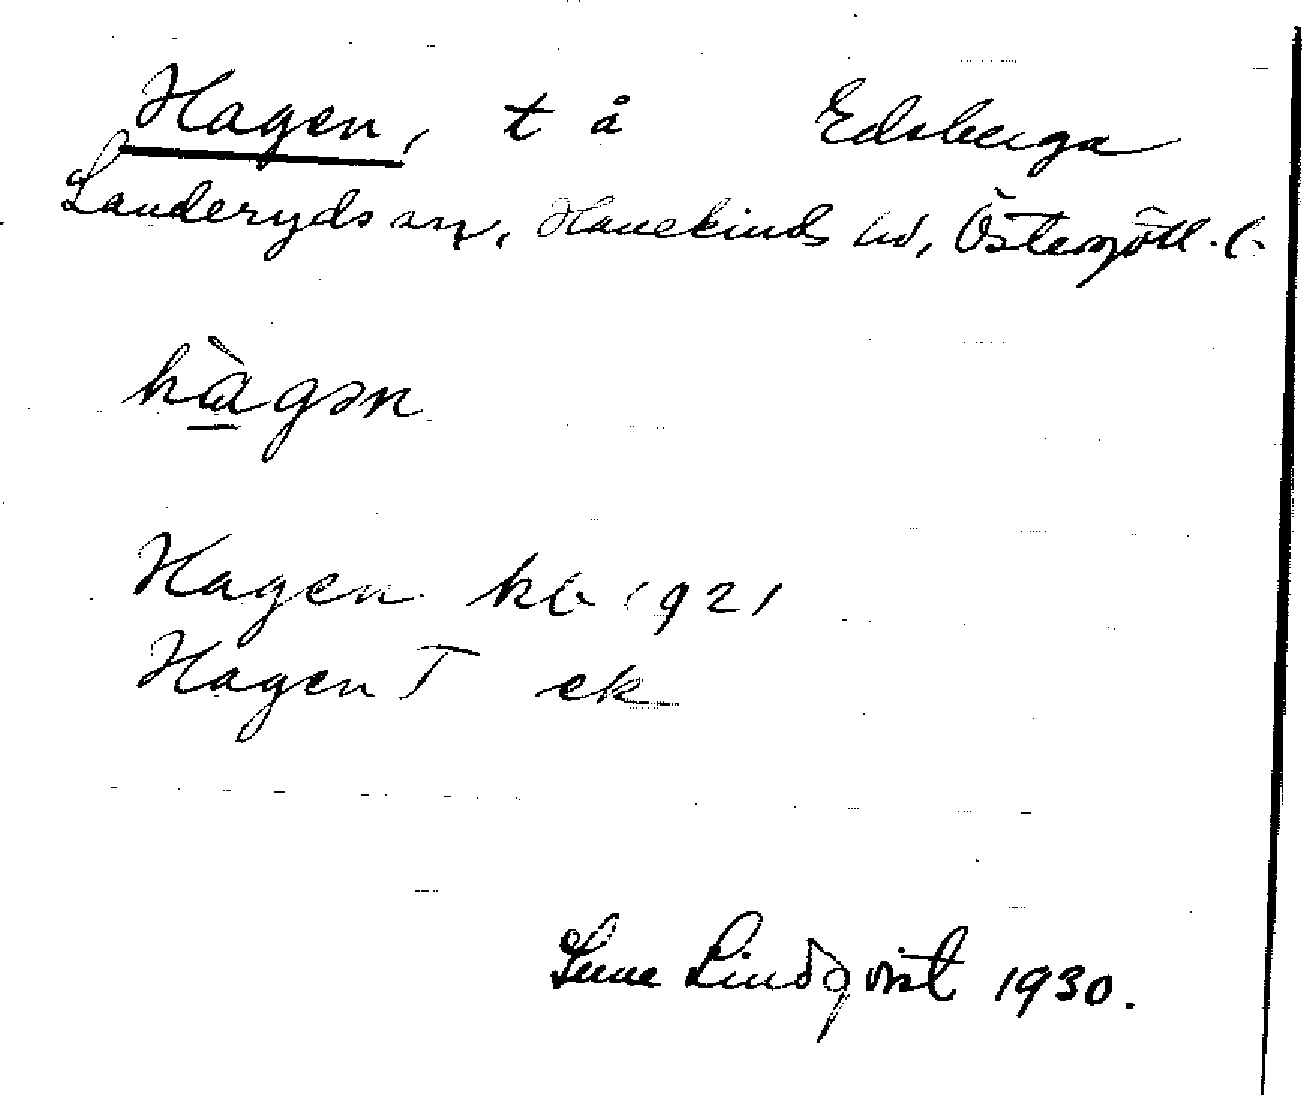 Hagen, t å Edsberga
Landeryds sn, Hanekinds hd, Östergötl. l.
hàgən
Hagen kb 1921
Hagen T ek
Sune Lindqvist 1930.